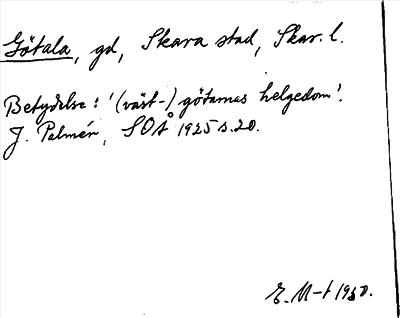 Götala, gd, Skara stad, Skar. l.
Betydelse: '(väst-) götarnas helgedom'.
J. Palmér, SOÅ 1925 s. 20.
E. M-t 1930.